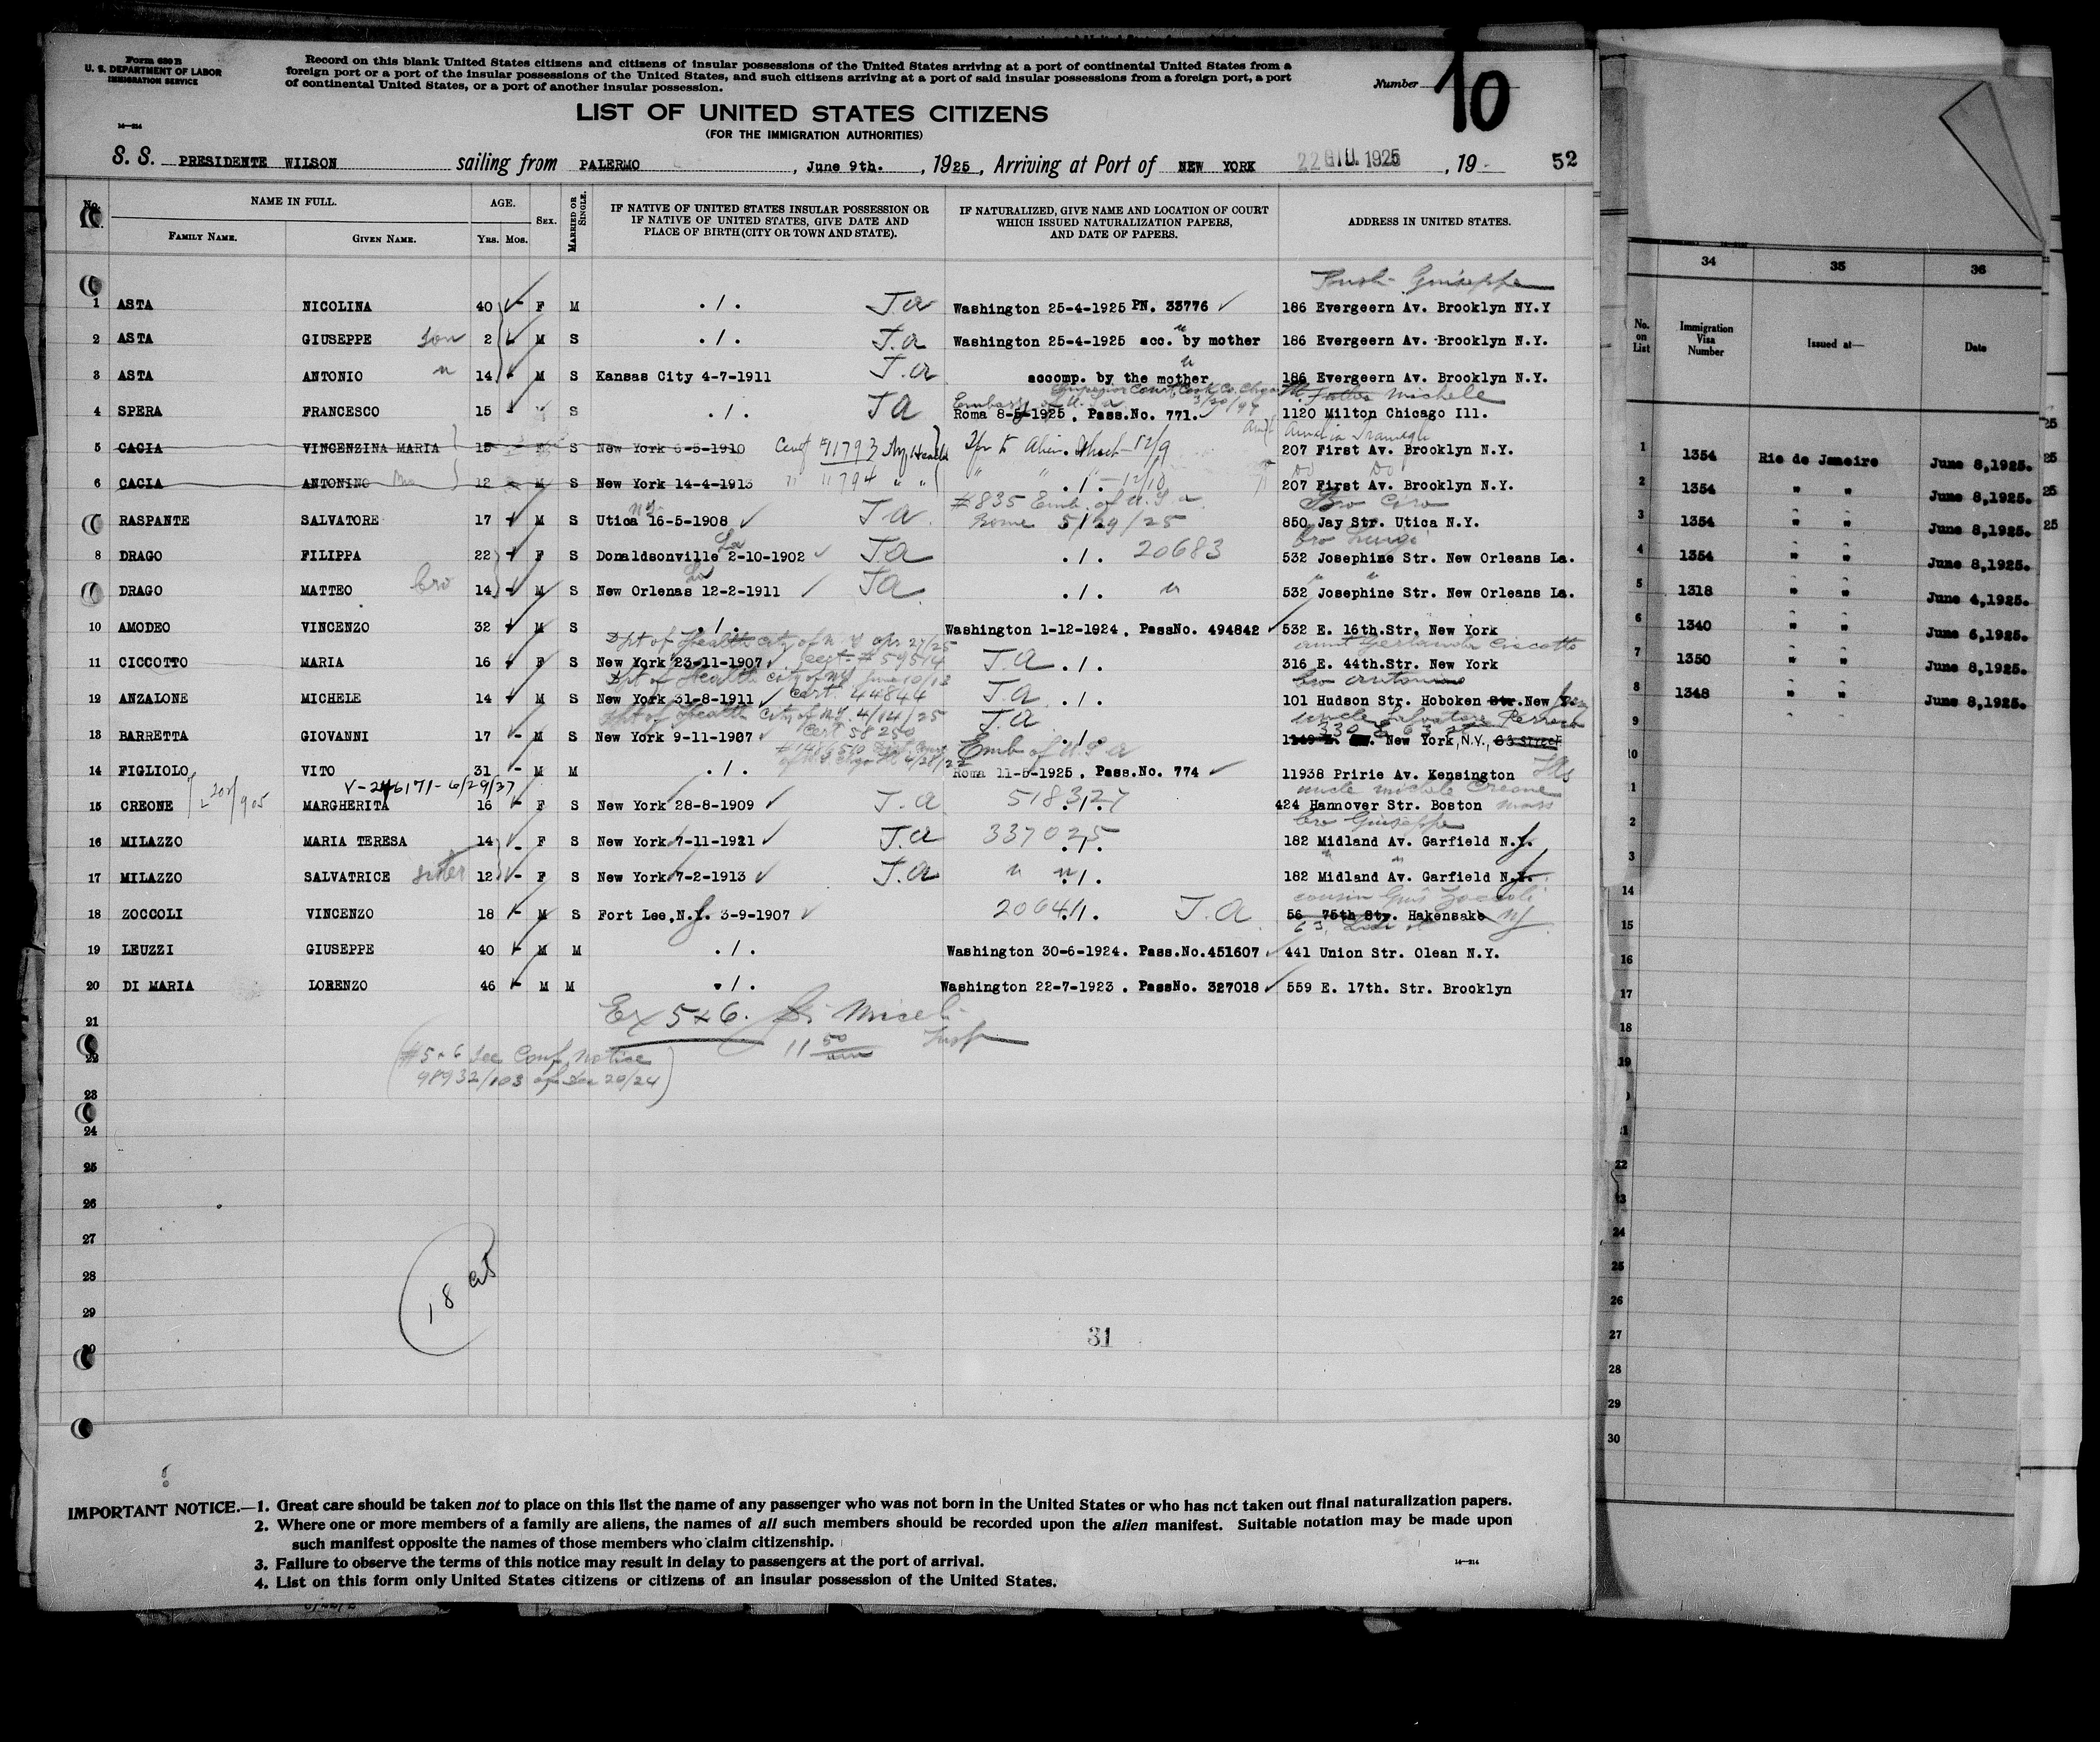 Form 630 B
U. S. DEPARTMENT OF LABOR
IMMIGRATION SERVICE
Record on this blank United States citizens and citizens of insular possessions of the United States arriving at a port of continental United States from a
foreign port or a port of the insular possessions of the United States, and such citizens arriving at a port of said insular possessions from a foreign port, a port
of continental United States, or a port of another insular possession.
Number 10
LIST OF UNITED STATES CITIZENS
(FOR THE IMMIGRATION AUTHORITIES)
S. S. PRESIDENTE WILSON sailing from PALERMO, June 9th., 1925, Arriving at Port of NEW YORK 22 GIU. 1925, 19 52
No. NAME IN FULL. FAMILY NAME. GIVEN NAME. AGE. YRS. MOS. SEX. MARRIED OR SINGLE. IF NATIVE OF UNITED STATES INSULAR POSSESSION OR IF NATIVE OF UNITED STATES, GIVE DATE AND PLACE OF BIRTH (CITY OR TOWN AND STATE). IF NATURALIZED, GIVE NAME AND LOCATION OF COURT WHICH ISSUED NATURALIZATION PAPERS, AND DATE OF PAPERS. ADDRESS IN UNITED STATES.
Husb- Giuseppe
1 ASTA NICOLINA 40 F M ./. J.a Washington 25-4-1925 PN. 33776 186 Evergeern Av. Brooklyn NY.Y
2 ASTA GIUSEPPE son 2 M S ./. J.a Washington 25-4-1925 acc. by mother 186 Evergeern Av. Brooklyn N.Y.
3 ASTA ANTONIO " 14 M S Kansas City 4-7-1911 J.a accomp. by the mother 186 Evergeern Av. Brooklyn N.Y.
Superior Court, Cook Co. Father Michele
Embassy of U.S.a
4 SPERA FRANCESCO 15 M S ./. J a Roma 8-5-1925. Pass.No. 771. 1120 Milton Chicago Ill.
aunt Amelia
5 CACIA VINCENZINA MARIA 15 F S New York 6-5-1910 Cert #11793 207 First Av. Brooklyn N.Y.
6 CACIA ANTONINO Bro 12 M S New York 14-4-1913 " " 11794 " " ./. 12/10 207 First Av. Brooklyn N.Y.
#835 Emb. of U.S a Bro Ciro
RASPANTE SALVATORE 17 M S Utica NY 16-5-1908 J a Rome 5/29/25 850 Jay Str. Utica N.Y.
bro Luigi
8 DRAGO FILIPPA 22 F S Donaldsonville La 2-10-1902 J a ./. 20683 532 Josephine Str. New Orleans La.
DRAGO MATTEO bro 14 M S New Orlenas La 12-2-1911 J a ./. " 532 Josephine Str. New Orleans La.
10 AMODEO VINCENZO 32 M S ./. Washington 1-12-1924. PassNo. 494842 532 E. 16th.Str. New York
Dpt of Health City of N.Y Apr 27/25 aunt Gerlanda Ciscotto
11 CICCOTTO MARIA 16 F S New York 23-11-1907 cert # 59514 J.a ./. 316 E. 44th.Str. New York
Dpt of Health City of NY June 10/13 bro Antonino
12 ANZALONE MICHELE 14 M S New York 31-8-1911 cert. 44844 J.a ./. 101 Hudson Str. Hoboken Str. New
Dpt of Health City of NY. 4/14/25 J.a uncle Salvatore
330 E 63 st
13 BARRETTA GIOVANNI 17 M S New York 9-11-1907 Cert 58250 ./. New York, N.Y., 63 Street
Emb of U.S a
14 FIGLIOLO VITO 31 M M ./. Roma 11-5-1925. Pass.No. 774 11938 Pririe Av. Kensington Ills
V-246171-6/29/37 uncle Michele Creone
15 CREONE MARGHERITA 16 F S New York 28-8-1909 J.a 518327 ./. 424 Hannover Str. Boston Mass
bro Giuseppe
16 MILAZZO MARIA TERESA 14 F S New York 7-11-1921 J.a 337025 ./. 182 Midland Av. Garfield N.J.
17 MILAZZO SALVATRICE sister 12 F S New York 7-2-1913 J.a " " ./. 182 Midland Av. Garfield N.J.
cousin Zoccoli
18 ZOCCOLI VINCENZO 18 M S Fort Lee,N.J. 3-9-1907 20641 ./. J.a 56 75th Str. Hakensake NJ
19 LEUZZI GIUSEPPE 40 M M ./. Washington 30-6-1924. Pass.No.451607 441 Union Str. Olean N.Y.
20 DI MARIA LORENZO 46 M M ./. Washington 22-7-1923. PassNo. 327018 559 E. 17th. Str. Brooklyn
21 Ex 5 & 6. Miceli
Insp
22 #5 & 6 See Conf. Notice 11 50 am
98932/103 of Dec 20/24
23
24
25
26
27
28
18 cit
29
31
30
IMPORTANT NOTICE.—1. Great care should be taken not to place on this list the name of any passenger who was not born in the United States or who has not taken out final naturalization papers.
2. Where one or more members of a family are aliens, the names of all such members should be recorded upon the alien manifest. Suitable notation may be made upon
such manifest opposite the names of those members who claim citizenship.
3. Failure to observe the terms of this notice may result in delay to passengers at the port of arrival.
4. List on this form only United States citizens or citizens of an insular possession of the United States.
14—214
34 35 36
No. on List Immigration Visa Number Issued at— Date
1 1354 Rio de Janeiro June 8,1925.
2 1354 " " June 8,1925.
3 1354 " " June 8,1925.
4 1354 " " June 8,1925.
5 1318 " " June 4,1925.
6 1340 " " June 6,1925.
7 1350 " " June 8,1925.
8 1348 " " June 8,1925.
9
10
1
2
3
14
15
16
17
18
19
22
24
25
26
27
28
29
30